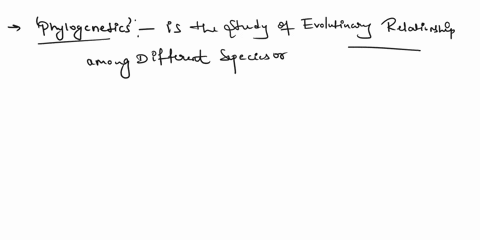 → 'Phylogenetics' :— is the study of Evolutinary Relationship
among Different Species or